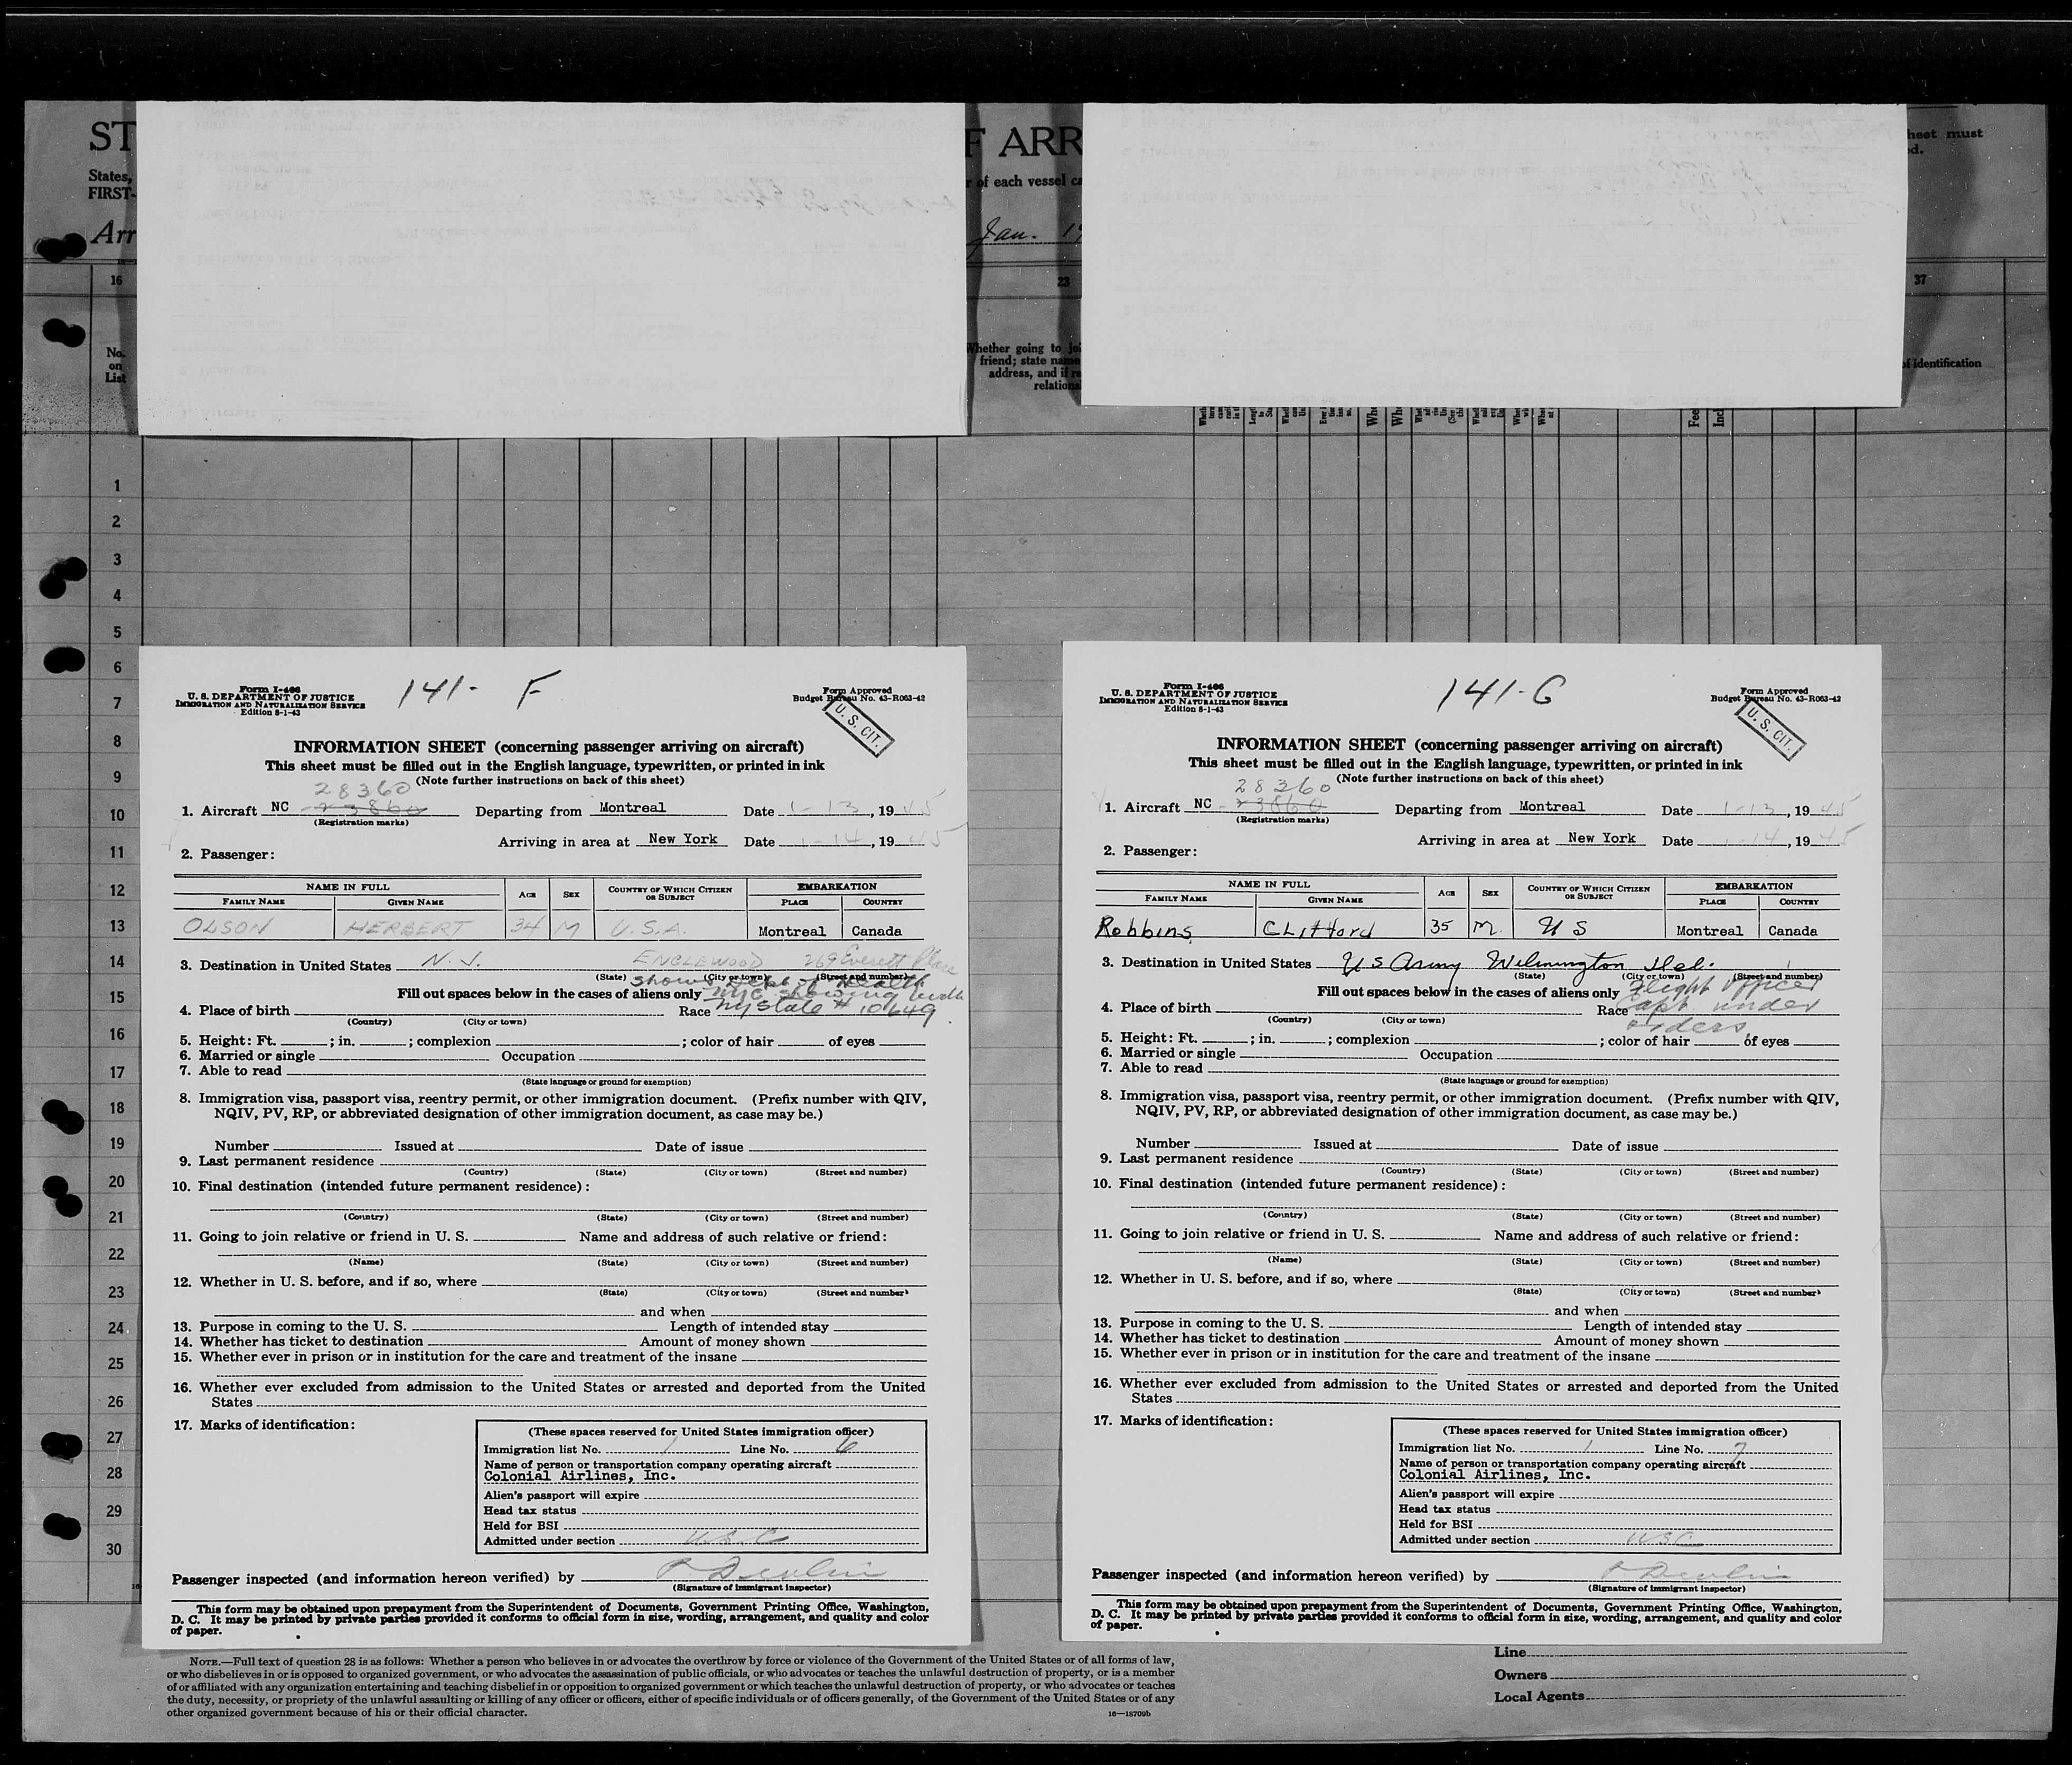 ST
F ARR
heet must
ed.
States,
r of each vessel ca
FIRST-
Arr
Jan. 19
16
23
37
No.
on
List
Whether going to joi
friend; state name
address, and if re
relations
of identification
Fee
Inc
1
2
3
4
5
6
7
8
9
10
11
12
13
14
15
16
17
18
19
20
21
22
23
24
25
26
27
28
29
30
Form I-466
U. S. DEPARTMENT OF JUSTICE
IMMIGRATION AND NATURALIZATION SERVICE
Edition 8-1-43
141- F
Form Approved
Budget Bureau No. 43-R063-42
U. S. CIT.
INFORMATION SHEET (concerning passenger arriving on aircraft)
This sheet must be filled out in the English language, typewritten, or printed in ink
(Note further instructions on back of this sheet)
28360
1. Aircraft NC 23860 Departing from Montreal Date 1-13, 1945
(Registration marks)
Arriving in area at New York Date 1-14, 1945
2. Passenger:
NAME IN FULL AGE SEX COUNTRY OF WHICH CITIZEN OR SUBJECT EMBARKATION
FAMILY NAME GIVEN NAME PLACE COUNTRY
OLSON HERBERT 34 M U.S.A. Montreal Canada
3. Destination in United States N. J. ENGLEWOOD 269 Everett Place
(State) (City or town) (Street and number)
shows Dept of Health
Fill out spaces below in the cases of aliens only NYC showing birth
4. Place of birth Race NY State # 10649
(Country) (City or town)
5. Height: Ft. ; in. ; complexion ; color of hair of eyes
6. Married or single Occupation
7. Able to read
(State language or ground for exemption)
8. Immigration visa, passport visa, reentry permit, or other immigration document. (Prefix number with QIV,
NQIV, PV, RP, or abbreviated designation of other immigration document, as case may be.)
Number Issued at Date of issue
9. Last permanent residence
(Country) (State) (City or town) (Street and number)
10. Final destination (intended future permanent residence):
(Country) (State) (City or town) (Street and number)
11. Going to join relative or friend in U. S. Name and address of such relative or friend:
(Name) (State) (City or town) (Street and number)
12. Whether in U. S. before, and if so, where
(State) (City or town) (Street and number)
and when
13. Purpose in coming to the U. S. Length of intended stay
14. Whether has ticket to destination Amount of money shown
15. Whether ever in prison or in institution for the care and treatment of the insane
16. Whether ever excluded from admission to the United States or arrested and deported from the United
States
17. Marks of identification:
(These spaces reserved for United States immigration officer)
Immigration list No. 1 Line No. 6
Name of person or transportation company operating aircraft
Colonial Airlines, Inc.
Alien's passport will expire
Head tax status
Held for BSI
Admitted under section U.S.C
Passenger inspected (and information hereon verified) by P Devlin
(Signature of immigrant inspector)
This form may be obtained upon prepayment from the Superintendent of Documents, Government Printing Office, Washington,
D. C. It may be printed by private parties provided it conforms to official form in size, wording, arrangement, and quality and color
of paper.
Form I-466
U. S. DEPARTMENT OF JUSTICE
IMMIGRATION AND NATURALIZATION SERVICE
Edition 8-1-43
141-G
Form Approved
Budget Bureau No. 43-R063-42
U. S. CIT.
INFORMATION SHEET (concerning passenger arriving on aircraft)
This sheet must be filled out in the English language, typewritten, or printed in ink
(Note further instructions on back of this sheet)
28360
1. Aircraft NC 23860 Departing from Montreal Date 1-13, 1945
(Registration marks)
Arriving in area at New York Date 1-14, 1945
2. Passenger:
NAME IN FULL AGE SEX COUNTRY OF WHICH CITIZEN OR SUBJECT EMBARKATION
FAMILY NAME GIVEN NAME PLACE COUNTRY
Robbins Clifford 35 M. U S Montreal Canada
3. Destination in United States US Army Wilmington Del.
(State) (City or town) (Street and number)
Fill out spaces below in the cases of aliens only Flight Officer
4. Place of birth Race Capt under
(Country) (City or town) orders
5. Height: Ft. ; in. ; complexion ; color of hair of eyes
6. Married or single Occupation
7. Able to read
(State language or ground for exemption)
8. Immigration visa, passport visa, reentry permit, or other immigration document. (Prefix number with QIV,
NQIV, PV, RP, or abbreviated designation of other immigration document, as case may be.)
Number Issued at Date of issue
9. Last permanent residence
(Country) (State) (City or town) (Street and number)
10. Final destination (intended future permanent residence):
(Country) (State) (City or town) (Street and number)
11. Going to join relative or friend in U. S. Name and address of such relative or friend:
(Name) (State) (City or town) (Street and number)
12. Whether in U. S. before, and if so, where
(State) (City or town) (Street and number)
and when
13. Purpose in coming to the U. S. Length of intended stay
14. Whether has ticket to destination Amount of money shown
15. Whether ever in prison or in institution for the care and treatment of the insane
16. Whether ever excluded from admission to the United States or arrested and deported from the United
States
17. Marks of identification:
(These spaces reserved for United States immigration officer)
Immigration list No. 1 Line No. 7
Name of person or transportation company operating aircraft
Colonial Airlines, Inc.
Alien's passport will expire
Head tax status
Held for BSI
Admitted under section USC
Passenger inspected (and information hereon verified) by P Devlin
(Signature of immigrant inspector)
This form may be obtained upon prepayment from the Superintendent of Documents, Government Printing Office, Washington,
D. C. It may be printed by private parties provided it conforms to official form in size, wording, arrangement, and quality and color
of paper.
NOTE.—Full text of question 28 is as follows: Whether a person who believes in or advocates the overthrow by force or violence of the Government of the United States or of all forms of law,
or who disbelieves in or is opposed to organized government, or who advocates the assassination of public officials, or who advocates or teaches the unlawful destruction of property, or is a member
of or affiliated with any organization entertaining and teaching disbelief in or opposition to organized government or which teaches the unlawful destruction of property, or who advocates or teaches
the duty, necessity, or propriety of the unlawful assaulting or killing of any officer or officers, either of specific individuals or of officers generally, of the Government of the United States or of any
other organized government because of his or their official character.
16—18709b
Line
Owners
Local Agents